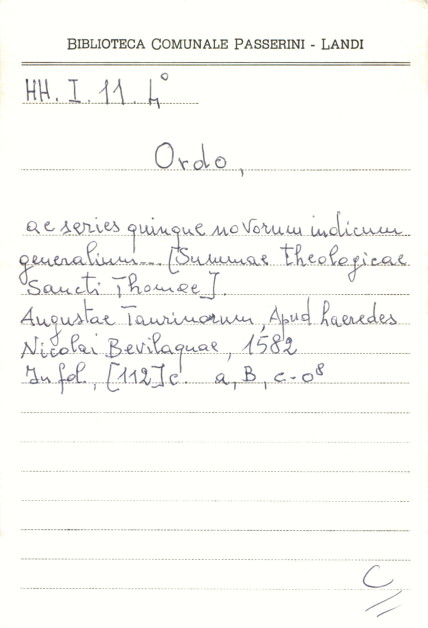 BIBLIOTECA COMUNALE PASSERINI - LANDI
HH. I. 11. 4°
Ordo,
ac series quinque novorum indicum
generalium... [Summae theologicae
Sancti Thomae].
Augustae Taurinorum, Apud haeredes
Nicolai Bevilaquae, 1582
In fol., [112]c. a, B, c-o⁸
C